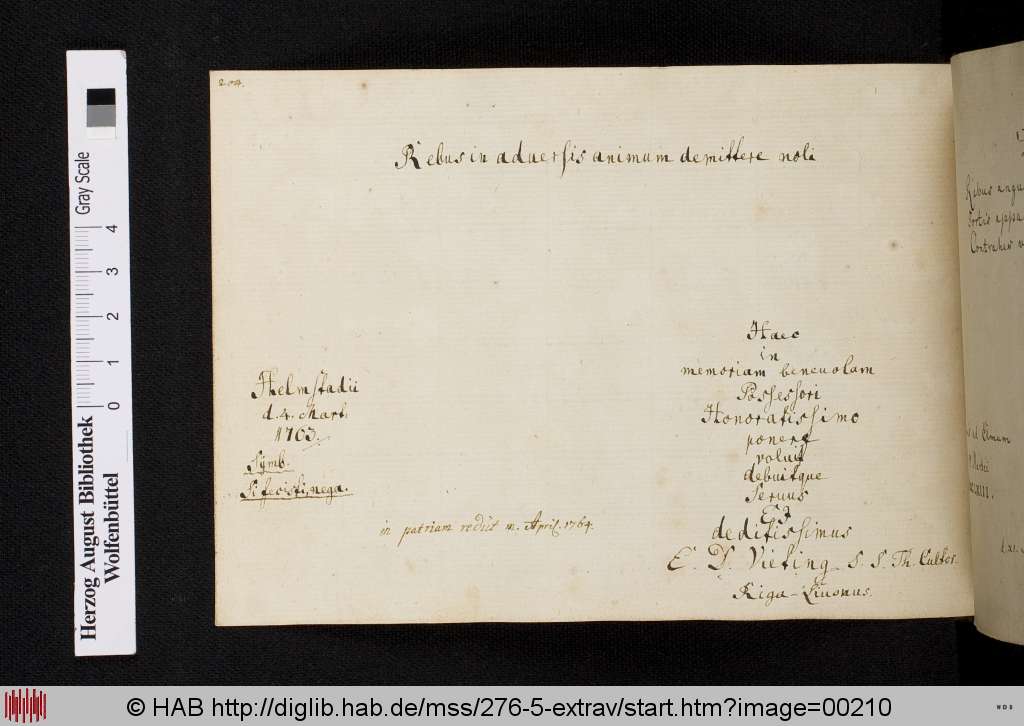 204.
Rebus in aduersis animum demittere noli
Helmstadii
d. 4. Mart.
1763.
Symb.
Si fecisti, nega.
in patriam rediit m. April. 1764.
Haec
in
memoriam beneuolam
Possessori
Honoratissimo
ponere
voluit
debuitque
Seruus
Et
deditissimus
E. D. Vieting S. S. Th. Cultor
Riga-Liuonus.
Rebus angu
Contrahes v
Herzog August Bibliothek
Wolfenbüttel
0 1 2 3 4
Gray Scale
© HAB http://diglib.hab.de/mss/276-5-extrav/start.htm?image=00210
HAB